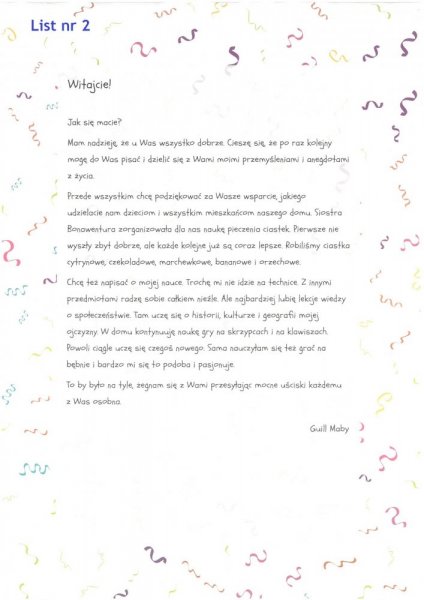 List nr 2
Witajcie!
Jak się macie?
Mam nadzieję, że u Was wszystko dobrze. Cieszę się, że po raz kolejny
mogę do Was pisać i dzielić się z Wami moimi przemyśleniami i anegdotami
z życia.
Przede wszystkim chcę podziękować za Wasze wsparcie, jakiego
udzielacie nam dzieciom i wszystkim mieszkańcom naszego domu. Siostra
Bonawentura zorganizowała dla nas naukę pieczenia ciastek. Pierwsze nie
wyszły zbyt dobrze, ale każde kolejne już są coraz lepsze. Robiliśmy ciastka
cytrynowe, czekoladowe, marchewkowe, bananowe i orzechowe.
Chcę też napisać o mojej nauce. Trochę mi nie idzie na technice. Z innymi
przedmiotami radzę sobie całkiem nieźle. Ale najbardziej lubię lekcje wiedzy
o społeczeństwie. Tam uczę się o historii, kulturze i geografii mojej
ojczyzny. W domu kontynuuję naukę gry na skrzypcach i na klawiszach.
Powoli ciągle uczę się czegoś nowego. Sama nauczyłam się też grać na
bębnie i bardzo mi się to podoba i pasjonuje.
To by było na tyle, żegnam się z Wami przesyłając mocne uściski każdemu
z Was osobna.
Guill Maby